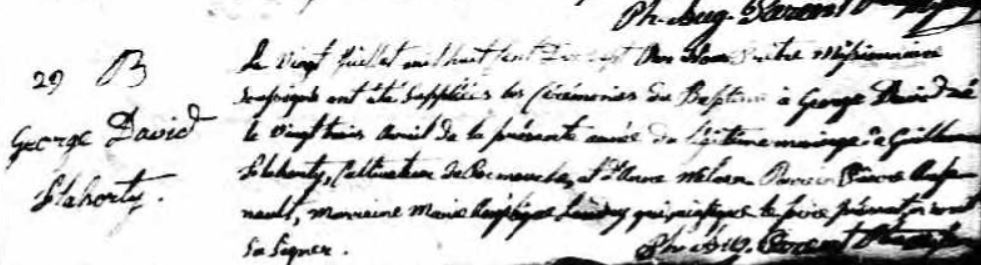 Ph. Aug. Parent
29 B
George David
Flahorty.
Le vingt Juillet mil huit cent Dix sept Par Nous Prêtre Missionnaire
soussigné ont été suppléées les Cérémonies du Baptême à George David né
le vingt trois Avril de la présente année du légitime mariage de Guillaume
Flahorty, Cultivateur de et d'Anne Parrain Pierre
marraine Marie Landry qui ainsi que le père présent n'ont
su signer.
Ph. Aug. Parent